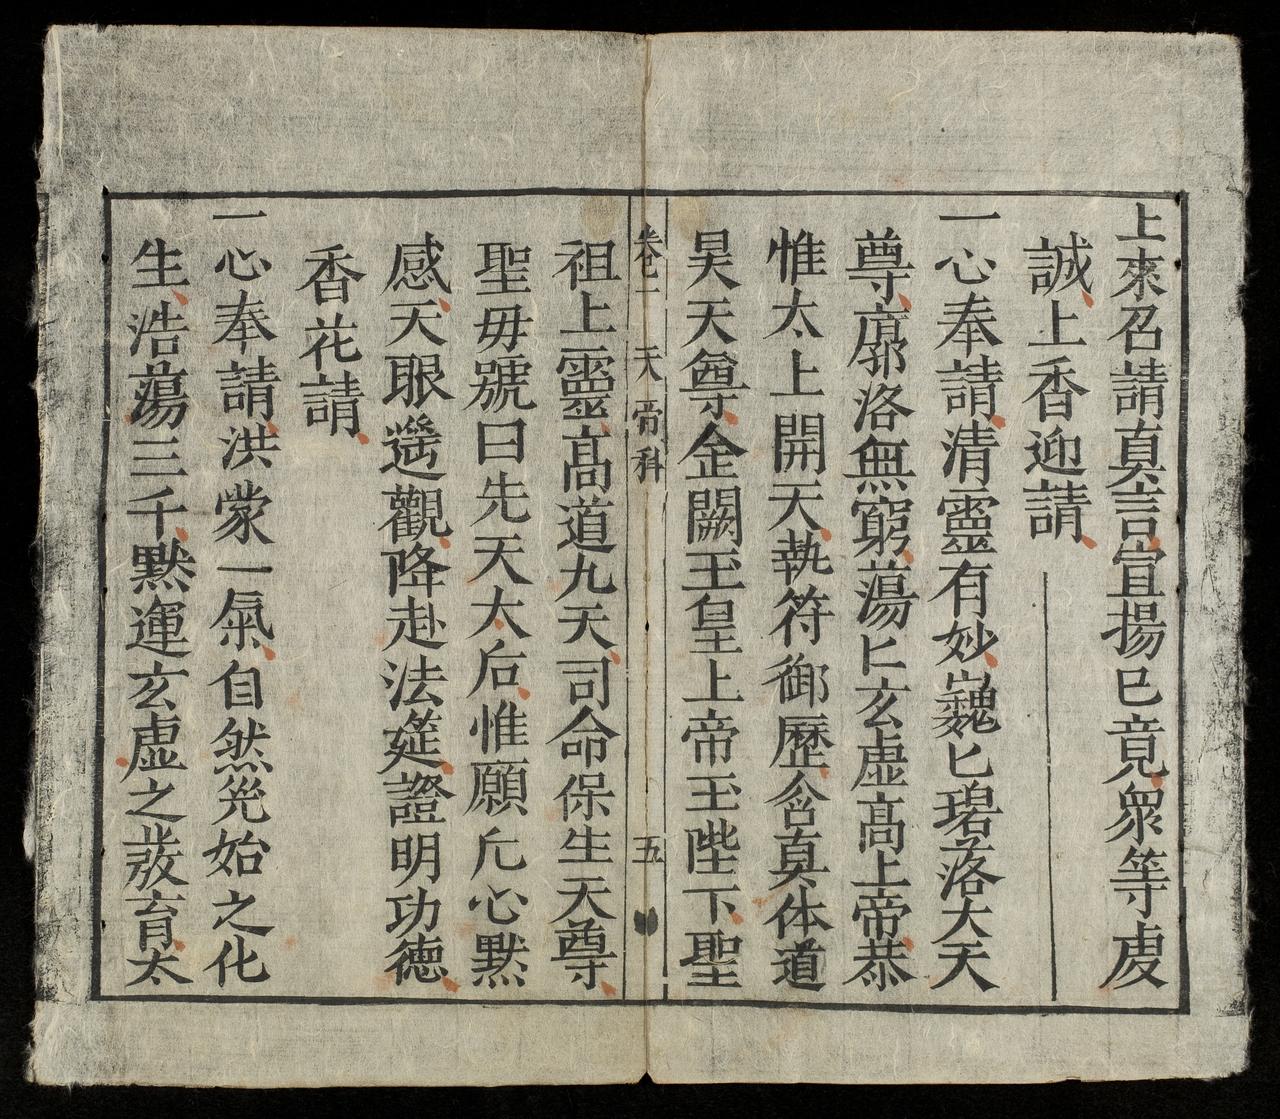 上來召請真言宣揚已竟衆等虔
誠上香迎請
一心奉請清靈有妙巍匕碧落大天
尊廓洛無窮蕩匕玄虛髙上帝恭
惟太上開天執符御歷含真体道
昊天尊金闕玉皇上帝玉陛下聖
卷一 天 科 五
祖上靈髙道九天司命保生天尊
聖毋號曰先天太后惟願凢心黙
感天眼遙觀降赴法筵證明功德
香花請
一心奉請洪蒙一氣自然光始之化
生浩蕩三千黙運玄虛之發育太